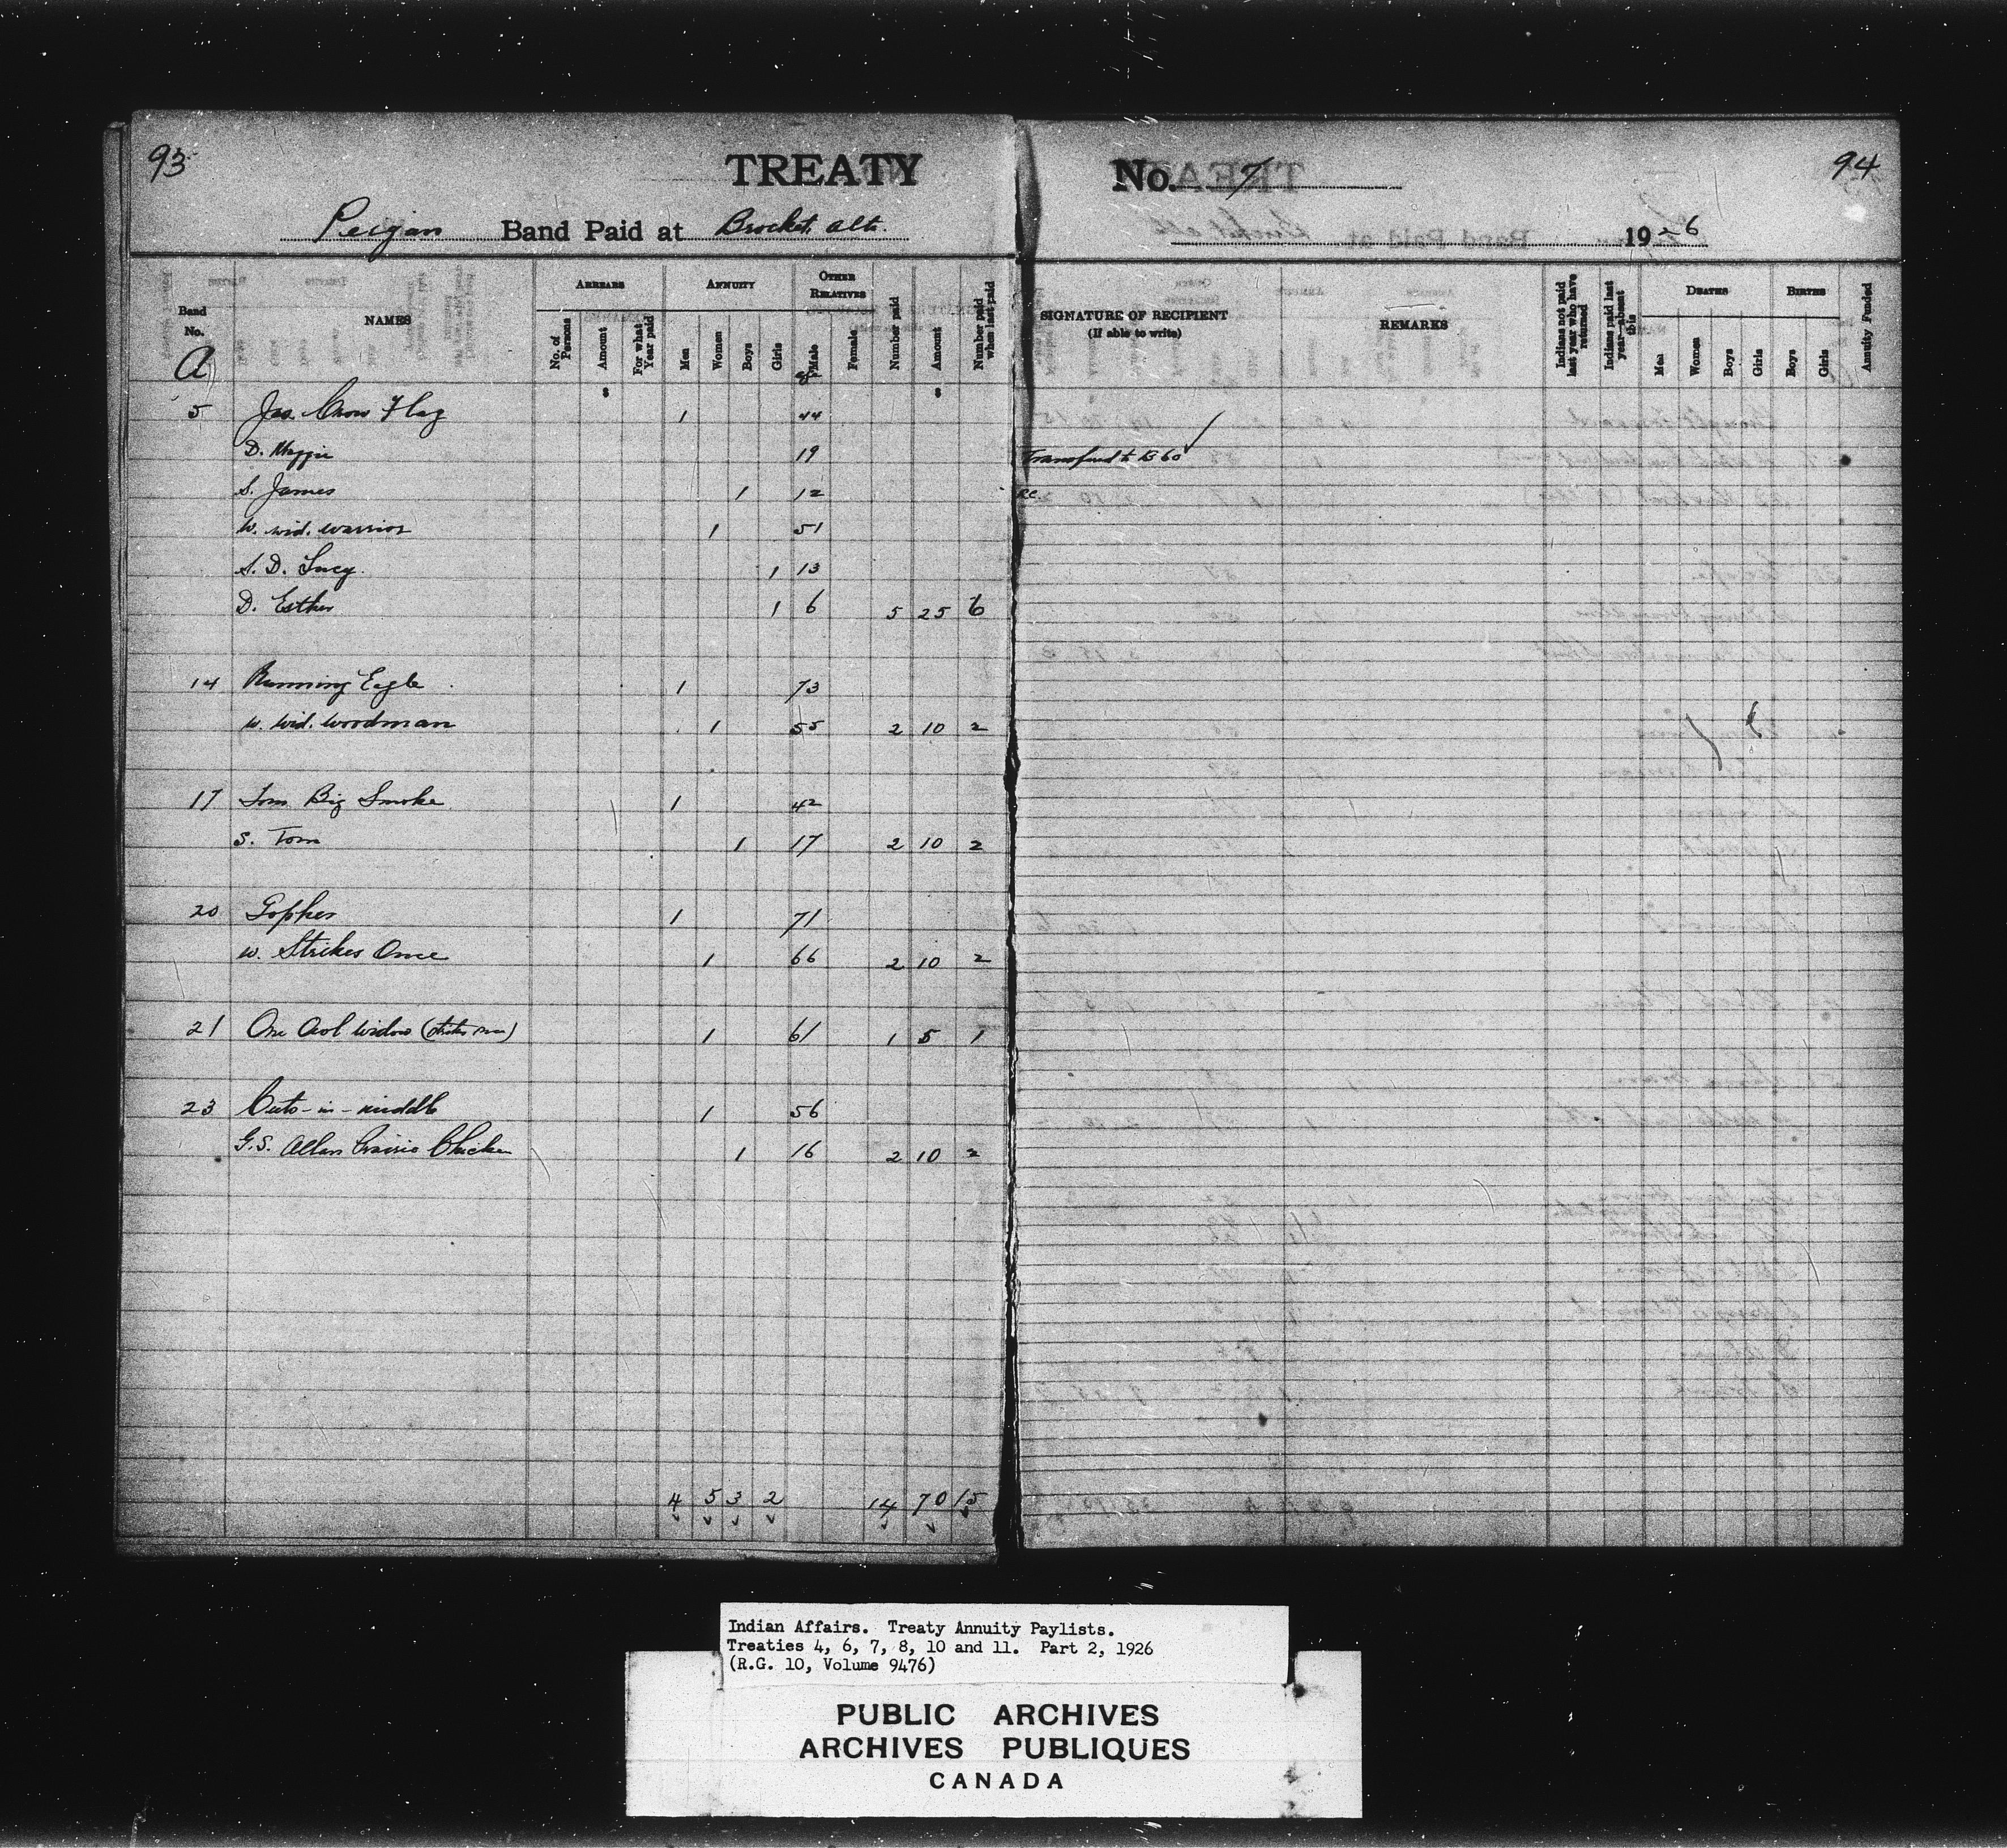 93
TREATY
No. 7
94
Peigan Band Paid at Brocket, Alta.
1926
Band No.
NAMES
ARREARS
No. of Persons
Amount
For what Year paid
ANNUITY
Men
Women
Boys
Girls
OTHER RELATIVES
Male
Female
Number paid
Amount
Number paid when last paid
SIGNATURE OF RECIPIENT
(If able to write)
REMARKS
Indians not paid last year who have returned
Indians paid last year—absent this
DEATHS
Men
Women
Boys
Girls
BIRTHS
Boys
Girls
Annuity Funded
A
$ $
5 Jas. Crow Flag 1 44
D. Maggie 19 Transferred to B 60 ✓
S. James 1 12 R.C.
W. wid. Warrior 1 51
S. D. Lucy 1 13
D. Esther 1 6 5 25 6
14 Running Eagle 1 73
W. Wid. Woodman 1 55 2 10 2
17 Tom Big Smoke 1 42
S. Tom 1 17 2 10 2
20 Gopher 1 71
W. Strikes Once 1 66 2 10 2
21 One Owl Widow 1 61 1 5 1
23 Cuts-in-middle 1 56
G.S. Allan Prairie Chicken 1 16 2 10 2
4 5 3 2 14 70 15
Indian Affairs. Treaty Annuity Paylists.
Treaties 4, 6, 7, 8, 10 and 11. Part 2, 1926
(R.G. 10, Volume 9476)
PUBLIC ARCHIVES
ARCHIVES PUBLIQUES
CANADA